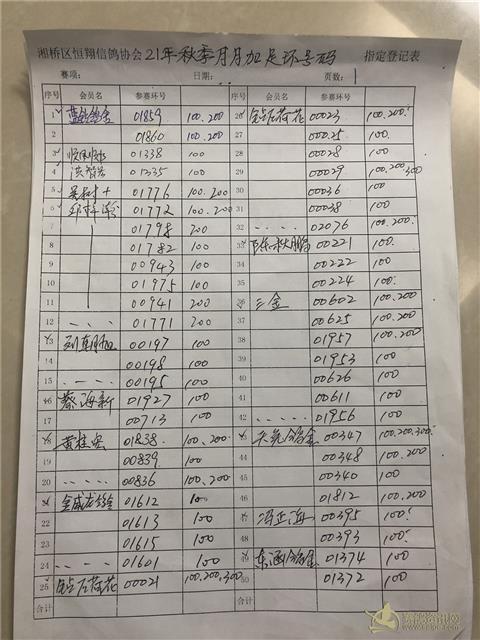 湘桥区恒翔信鸽协会 21年秋季月月加足环号码 指定登记表
赛项: 日期: 页数: 1
序号 会员名 参赛环号 序号 会员名 参赛环号
1 01859 100.200 26 钻石荷花 00023 100.200
2 01860 100.200 27 00025 100.
3 01338 100 28 00028 100
4 洪智 01235 100 29 00029 100.200.300
5 01776 100.200 30 00036 100
6 01772 100.200 31 00038 100
7 01798 200 32 02076 100.200
8 01782 100 33 陈秋鹏 00221 100.
9 00943 100 34 00222 100
10 01975 100 35 00224 100
11 00941 200 36 三金 00602 100.200
12 01771 200 37 00625 100.200
13 刘朝加 00197 100 38 01957 100.200
14 00198 100 39 01953 100
15 00195 100 40 00626 100
16 蔡海新 01927 100 41 00611 100
17 00713 100 42 01956 100
18 黄桂 01838 100.200 43 00347 100.200.300
19 00839 100 44 00348 100.200
20 00836 100.200 45 00340 100
21 金威 01612 100 46 01812 100.200
22 01613 100 47 冯正海 00395 100
23 01615 100 48 00393 100
24 01601 100 49 东涵 01374 100
25 钻石荷花 00021 100.200.300 50 01372 100
合计 合计